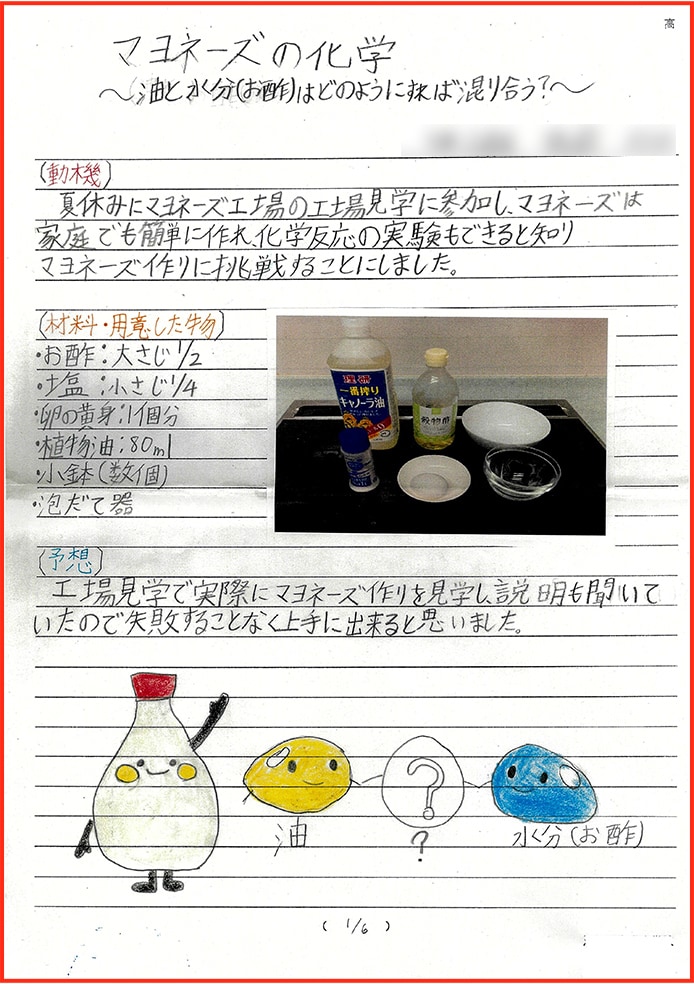 高
マヨネーズの化学
～油と水分(お酢)はどのようにすれば混り合う?～
(動機)
夏休みにマヨネーズ工場の工場見学に参加し、マヨネーズは
家庭でも簡単に作れ、化学反応の実験もできると知り
マヨネーズ作りに挑戦することにしました。
(材料・用意した物)
・お酢:大さじ1/2
・塩:小さじ1/4
・卵の黄身:1個分
・植物油:80ml
・小鉢(数個)
・泡だて器
理研
一番搾り
キャノーラ油
穀物酢
(予想)
工場見学で実際にマヨネーズ作りを見学し説明も聞いて
いたので失敗することなく上手に出来ると思いました。
?
油
?
水分(お酢)
(1/6)